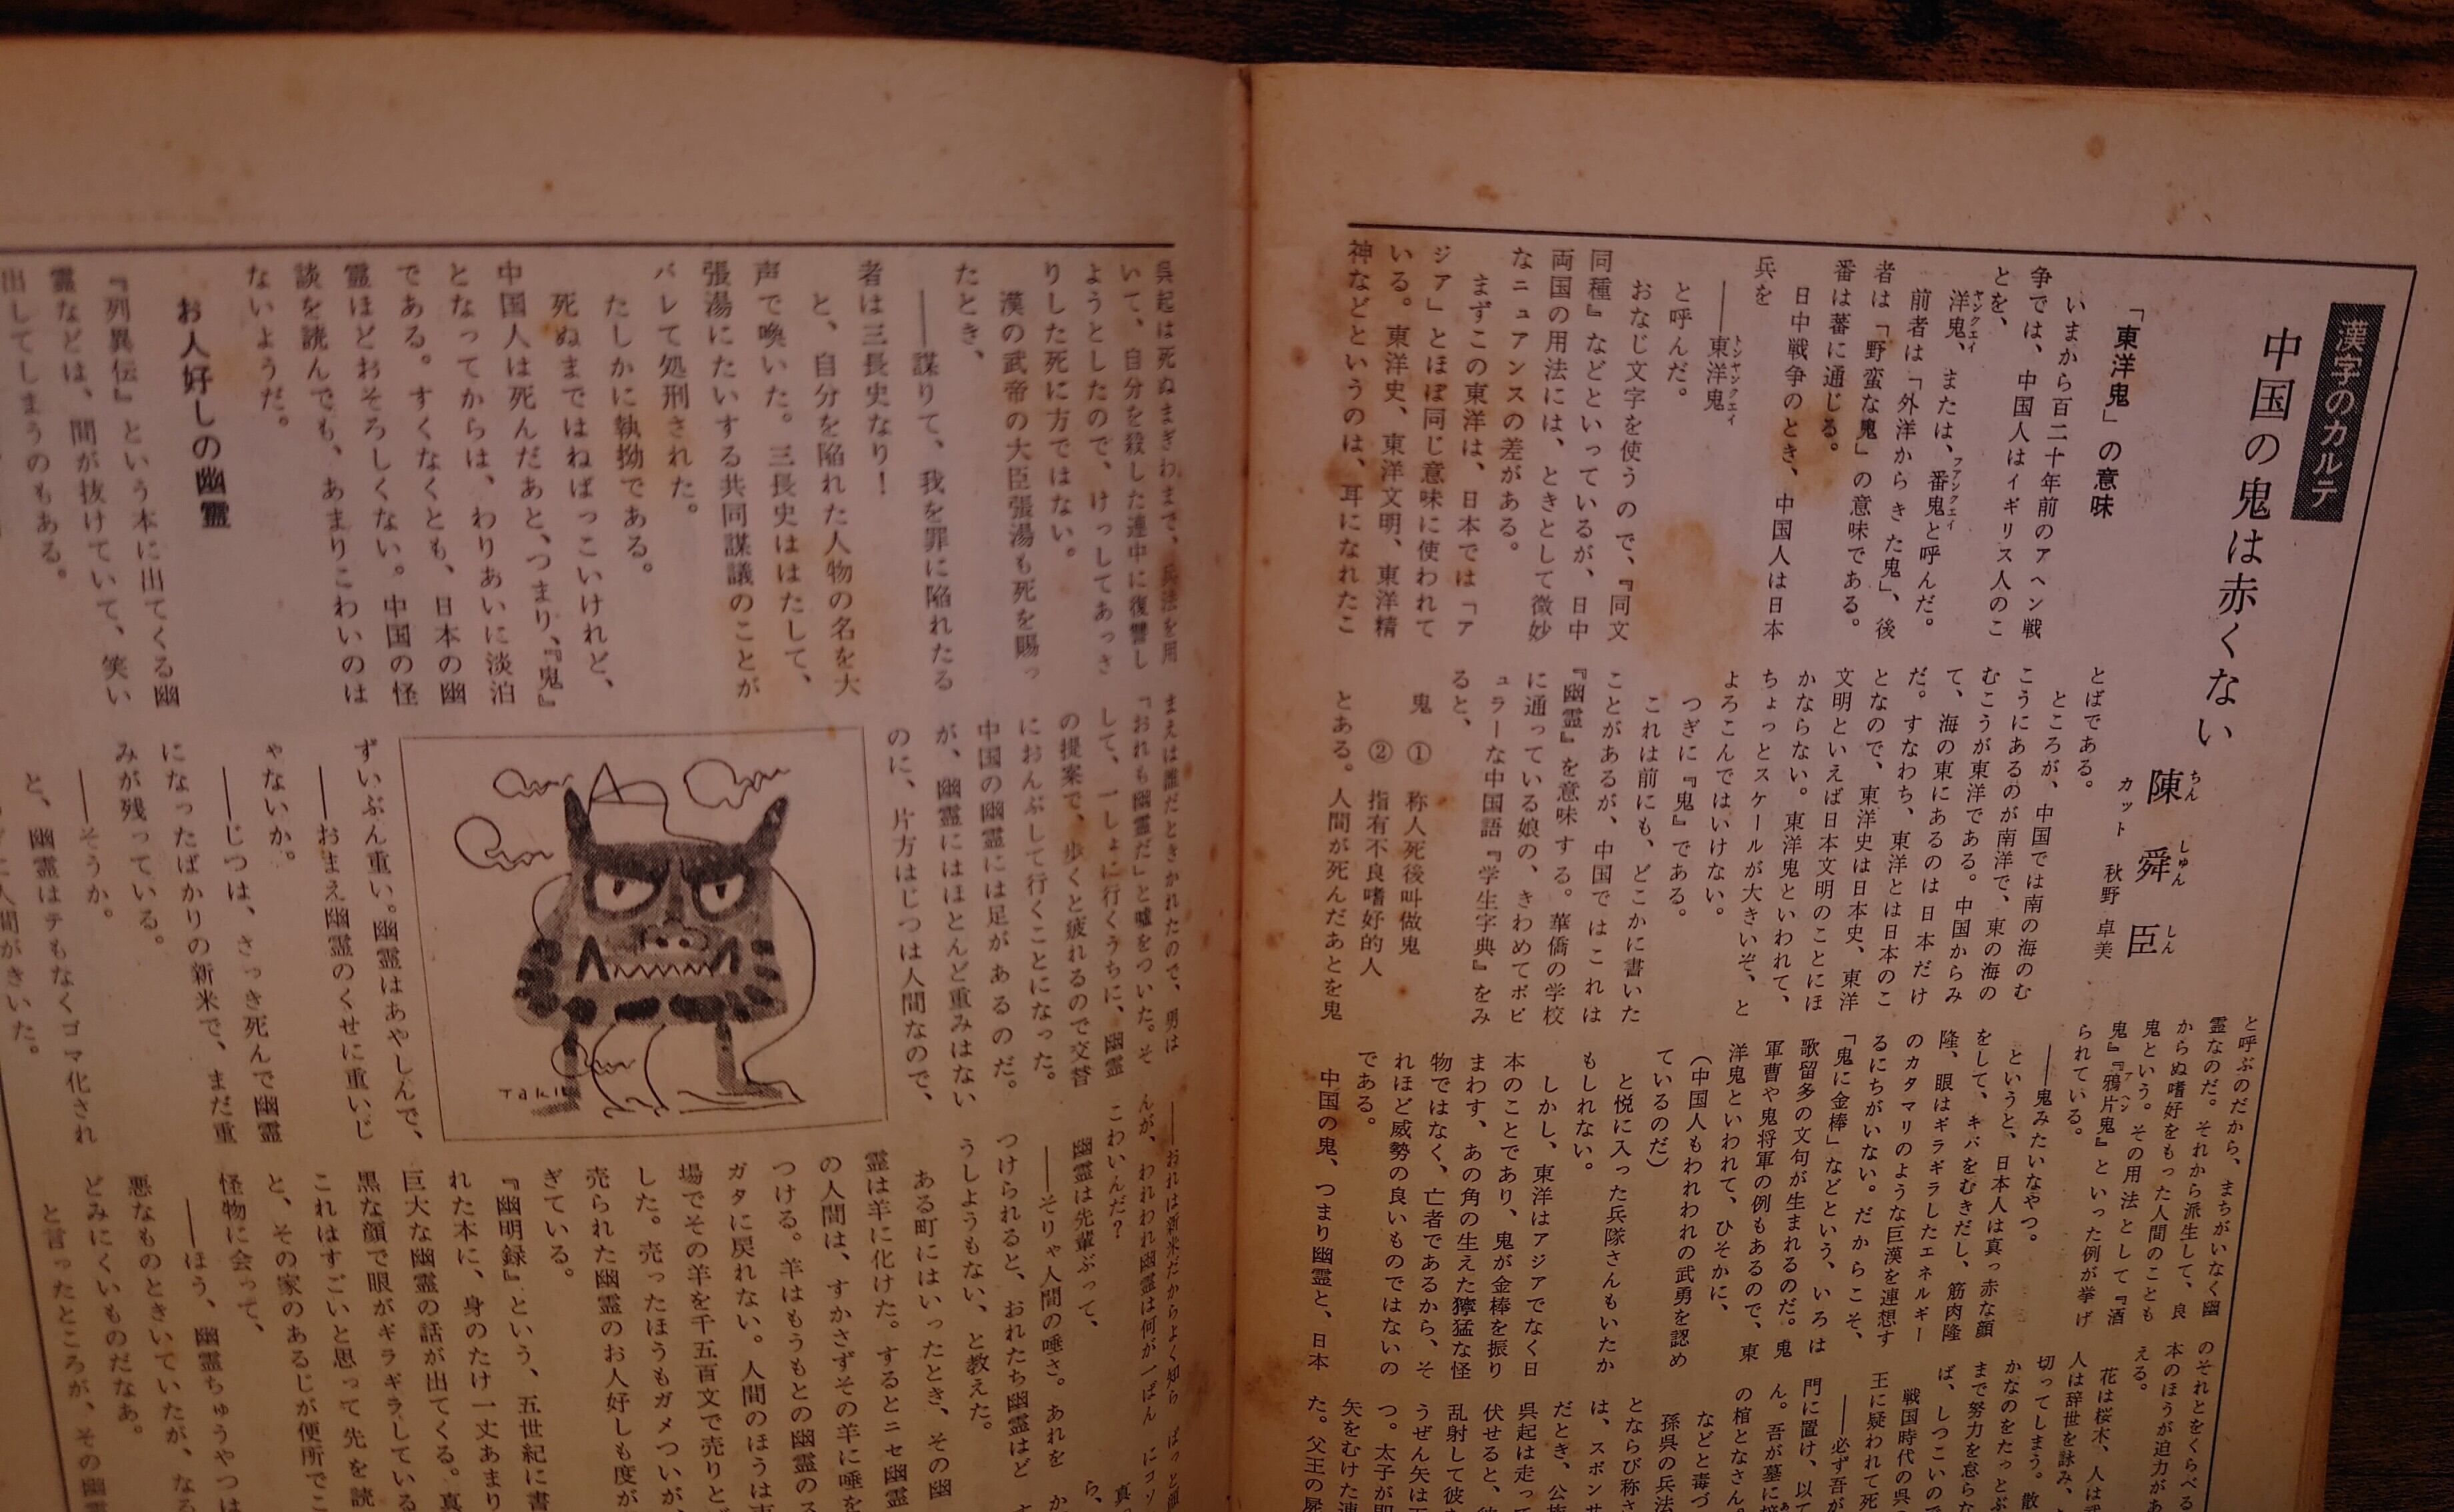 漢字のカルテ
中国の鬼は赤くない
陳舜臣
ちんしゅんしん
カット　秋野卓美
「東洋鬼」の意味
いまから百二十年前のアヘン戦
争では、中国人はイギリス人のこ
とを、
洋鬼、または、番鬼と呼んだ。
ヤンクエイ
フアンクエイ
前者は「外洋からきた鬼」、後
者は「野蛮な鬼」の意味である。
番は蕃に通じる。
日中戦争のとき、中国人は日本
兵を
――東洋鬼
トンヤンクエイ
と呼んだ。
おなじ文字を使うので、『同文
同種』などといっているが、日中
両国の用法には、ときとして微妙
なニュアンスの差がある。
まずこの東洋は、日本では「ア
ジア」とほぼ同じ意味に使われて
いる。東洋史、東洋文明、東洋精
神などというのは、耳になれたこ
とばである。
ところが、中国では南の海のむ
こうにあるのが南洋で、東の海の
むこうが東洋である。中国からみ
て、海の東にあるのは日本だけ
だ。すなわち、東洋とは日本のこ
となので、東洋史は日本史、東洋
文明といえば日本文明のことにほ
かならない。東洋鬼といわれて、
ちょっとスケールが大きいぞ、と
よろこんではいけない。
つぎに『鬼』である。
これは前にも、どこかに書いた
ことがあるが、中国ではこれは
『幽霊』を意味する。華僑の学校
に通っている娘の、きわめてポピ
ュラーな中国語『学生字典』をみ
ると、
鬼　①　称人死後叫做鬼
②　指有不良嗜好的人
とある。人間が死んだあとを鬼
と呼ぶのだから、まちがいなく幽
霊なのだ。それから派生して、良
からぬ嗜好をもった人間のことも
鬼という。その用法として『酒
鬼』『鴉片鬼』といった例が挙げ
アヘン
られている。
――鬼みたいなやつ。
というと、日本人は真っ赤な顔
をして、キバをむきだし、筋肉隆
隆、眼はギラギラしたエネルギー
のカタマリのような巨漢を連想す
るにちがいない。だからこそ、
「鬼に金棒」などという、いろは
歌留多の文句が生まれるのだ。鬼
軍曹や鬼将軍の例もあるので、東
洋鬼といわれて、ひそかに、
（中国人もわれわれの武勇を認め
ているのだ）
と悦に入った兵隊さんもいたか
もしれない。
しかし、東洋はアジアでなく日
本のことであり、鬼が金棒を振り
まわす、あの角の生えた獰猛な怪
物ではなく、亡者であるから、そ
れほど威勢の良いものではないの
である。
中国の鬼、つまり幽霊と、日本
のそれとをくらべる
本のほうが迫力があ
える。
花は桜木、人は武
人は辞世を詠み、
切ってしまう。散
かなのをたっとぶ
まで努力を怠らな
ば、しつこいので
戦国時代の呉
王に疑われて死
――必ず吾が
門に置け、以て
ん。吾が墓に
の棺となさん。
などと毒づ
孫呉の兵法
とならび称さ
は、スポンサ
だとき、公族
呉起は走って
伏せると、
乱射して彼
うぜん矢は
つ。太子が即
矢をむけた連
た。父王の屍
呉起は死ぬまぎわまで、兵法を用
いて、自分を殺した連中に復讐し
ようとしたので、けっしてあっさ
りした死に方ではない。
漢の武帝の大臣張湯も死を賜っ
たとき、
――謀りて、我を罪に陥れたる
者は三長史なり！
と、自分を陥れた人物の名を大
声で喚いた。三長史ははたして、
張湯にたいする共同謀議のことが
バレて処刑された。
たしかに執拗である。
死ぬまではねばっこいけれど、
中国人は死んだあと、つまり、『鬼』
となってからは、わりあいに淡泊
である。すくなくとも、日本の幽
霊ほどおそろしくない。中国の怪
談を読んでも、あまりこわいのは
ないようだ。
お人好しの幽霊
『列異伝』という本に出てくる幽
霊などは、間が抜けていて、笑い
出してしまうのもある。
まえは誰だときかれたので、男は
「おれも幽霊だ」と嘘をついた。そ
して、一しょに行くうちに、幽霊
の提案で、歩くと疲れるので交替
におんぶして行くことになった。
中国の幽霊には足があるのだ。
が、幽霊にはほとんど重みはない
のに、片方はじつは人間なので、
ずいぶん重い。幽霊はあやしんで、
――おまえ幽霊のくせに重いじ
ゃないか。
――じつは、さっき死んで幽霊
になったばかりの新米で、まだ重
みが残っている。
――そうか。
と、幽霊はテもなくゴマ化され
人間がきいた。
――おれは新米だからよく知ら
んが、われわれ幽霊は何が一ばん
こわいんだ？
幽霊は先輩ぶって、
――そりゃ人間の唾さ。あれを
つけられると、おれたち幽霊はど
うしようもない、と教えた。
ある町にはいったとき、その幽
霊は羊に化けた。するとニセ幽霊
の人間は、すかさずその羊に唾を
つける。羊はもうもとの幽霊のス
ガタに戻れない。人間のほうは
場でその羊を千五百文で売りと
した。売ったほうもガメついが、
売られた幽霊のお人好しも度が
ぎている。
『幽明録』という、五世紀に書
れた本に、身のたけ一丈あまり
巨大な幽霊の話が出てくる。真
黒な顔で眼がギラギラしている
これはすごいと思って先を読
と、その家のあるじが便所でこ
怪物に会って、
――ほう、幽霊ちゅうやつは
悪なものときいていたが、なる
どみにくいものだなあ。
と言ったところが、その幽霊
TAKU